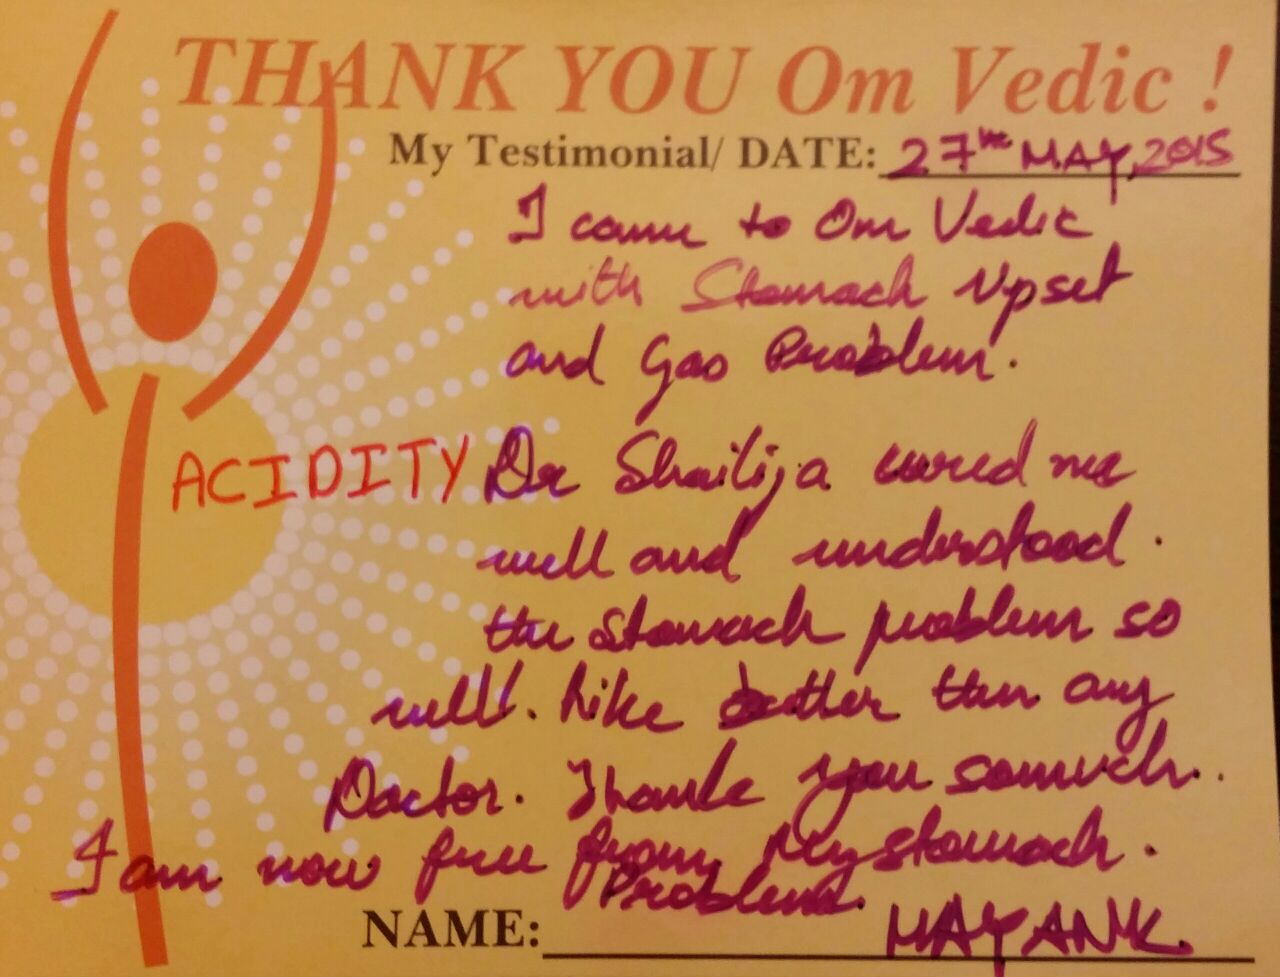 THANK YOU Om Vedic !
My Testimonial/ DATE: 27th MAY, 2015
I came to Om Vedic
with Stomach Upset
and Gas Problem.
ACIDITY
Dr Shailija cured me
well and understood.
the Stomach problem so
well. Like better then any
Doctor. Thank you somuch..
I am now free from My stomach.
Problem.
NAME: MAYANK.